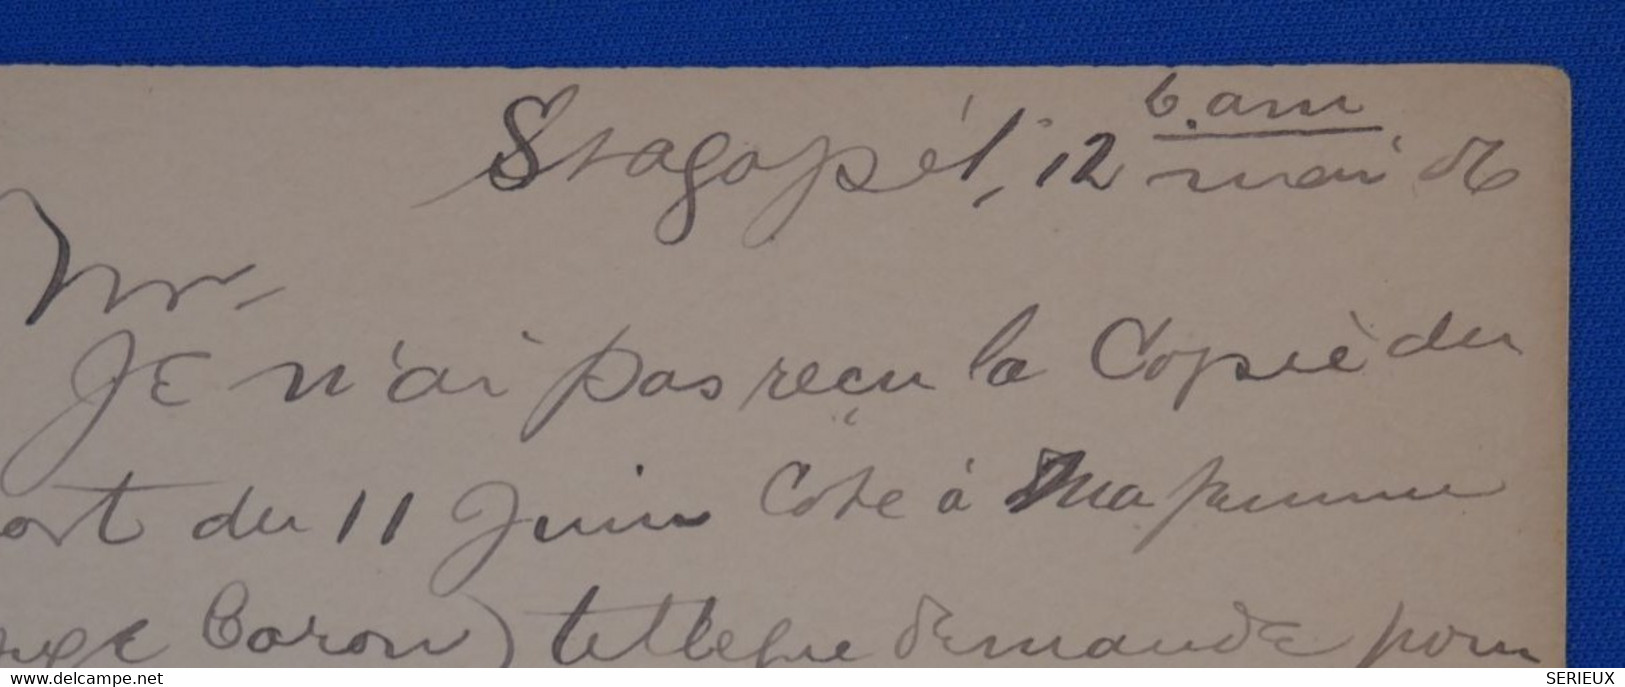 6. am
Stagapél, 12 mai 06
Mr.
Je n'ai pas reçu la Copie du
ort du 11 Juin Cote à Ma
Caron) demande pour
delcampe.net
SERIEUX